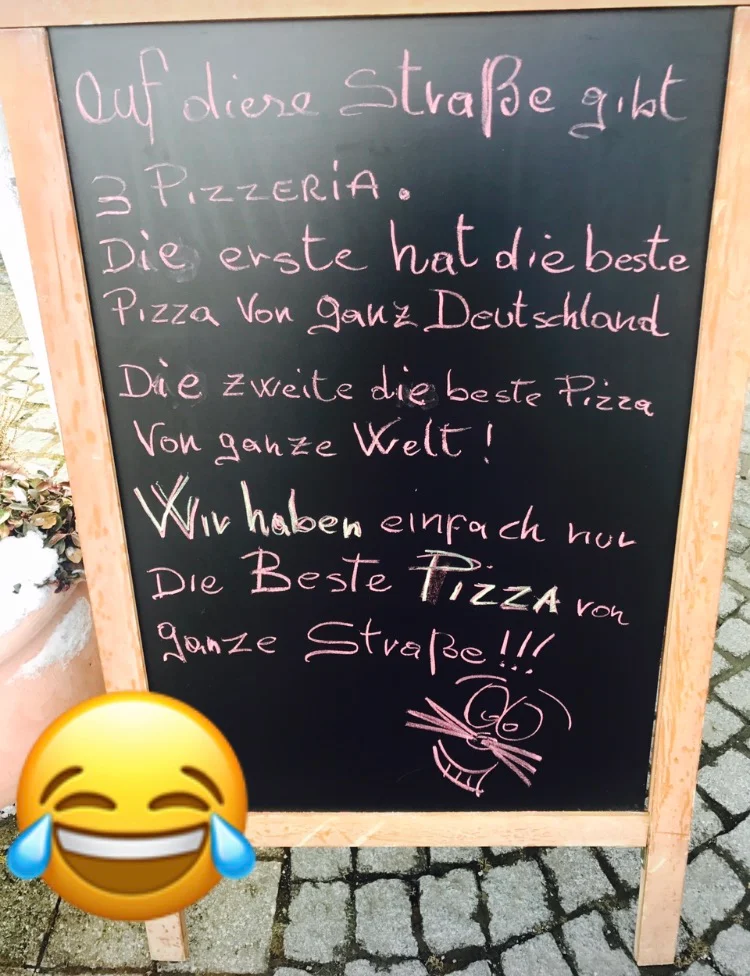 Auf diese Straße gibt
3 PIZZERIA.
Die erste hat die beste
Pizza Von ganz Deutschland
Die zweite die beste Pizza
Von ganze Welt!
Wir haben einfach nur
Die Beste PIZZA von
ganze Straße!!!